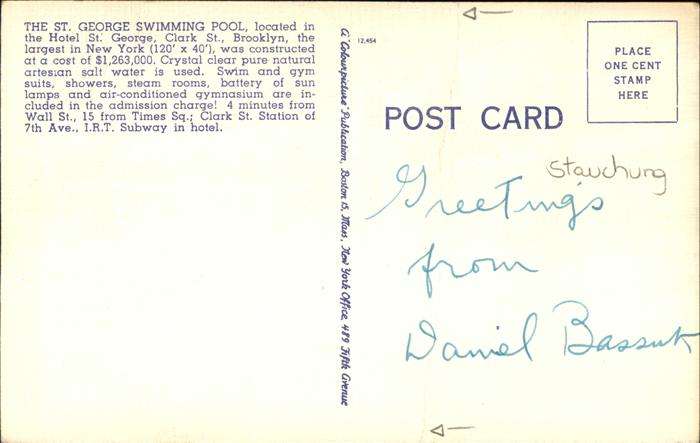 THE ST. GEORGE SWIMMING POOL, located in
the Hotel St. George, Clark St., Brooklyn, the
largest in New York (120' x 40'), was constructed
at a cost of $1,263,000. Crystal clear pure natural
artesian salt water is used. Swim and gym
suits, showers, steam rooms, battery of sun
lamps and air-conditioned gymnasium are in-
cluded in the admission charge! 4 minutes from
Wall St., 15 from Times Sq.; Clark St. Station of
7th Ave., I.R.T. Subway in hotel.
A "Colourpicture" Publication, Boston 15, Mass, New York Office, 489 Fifth Avenue
12,454
PLACE
ONE CENT
STAMP
HERE
POST CARD
Stauchung
Greetings
from
Daniel Bassuk